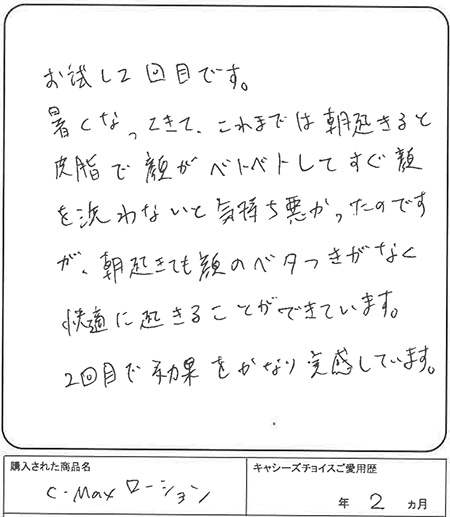 お試し2回目です。
暑くなってきて、これまでは朝起きると
皮脂で顔がベトベトしてすぐ顔
を洗わないと気持ち悪かったのです
が、朝起きても顔のベタつきがなく
快適に起きることができています。
2回目で効果をかなり実感しています。
購入された商品名
C-Maxローション
キャシーズチョイスご愛用歴
年 2 ヵ月